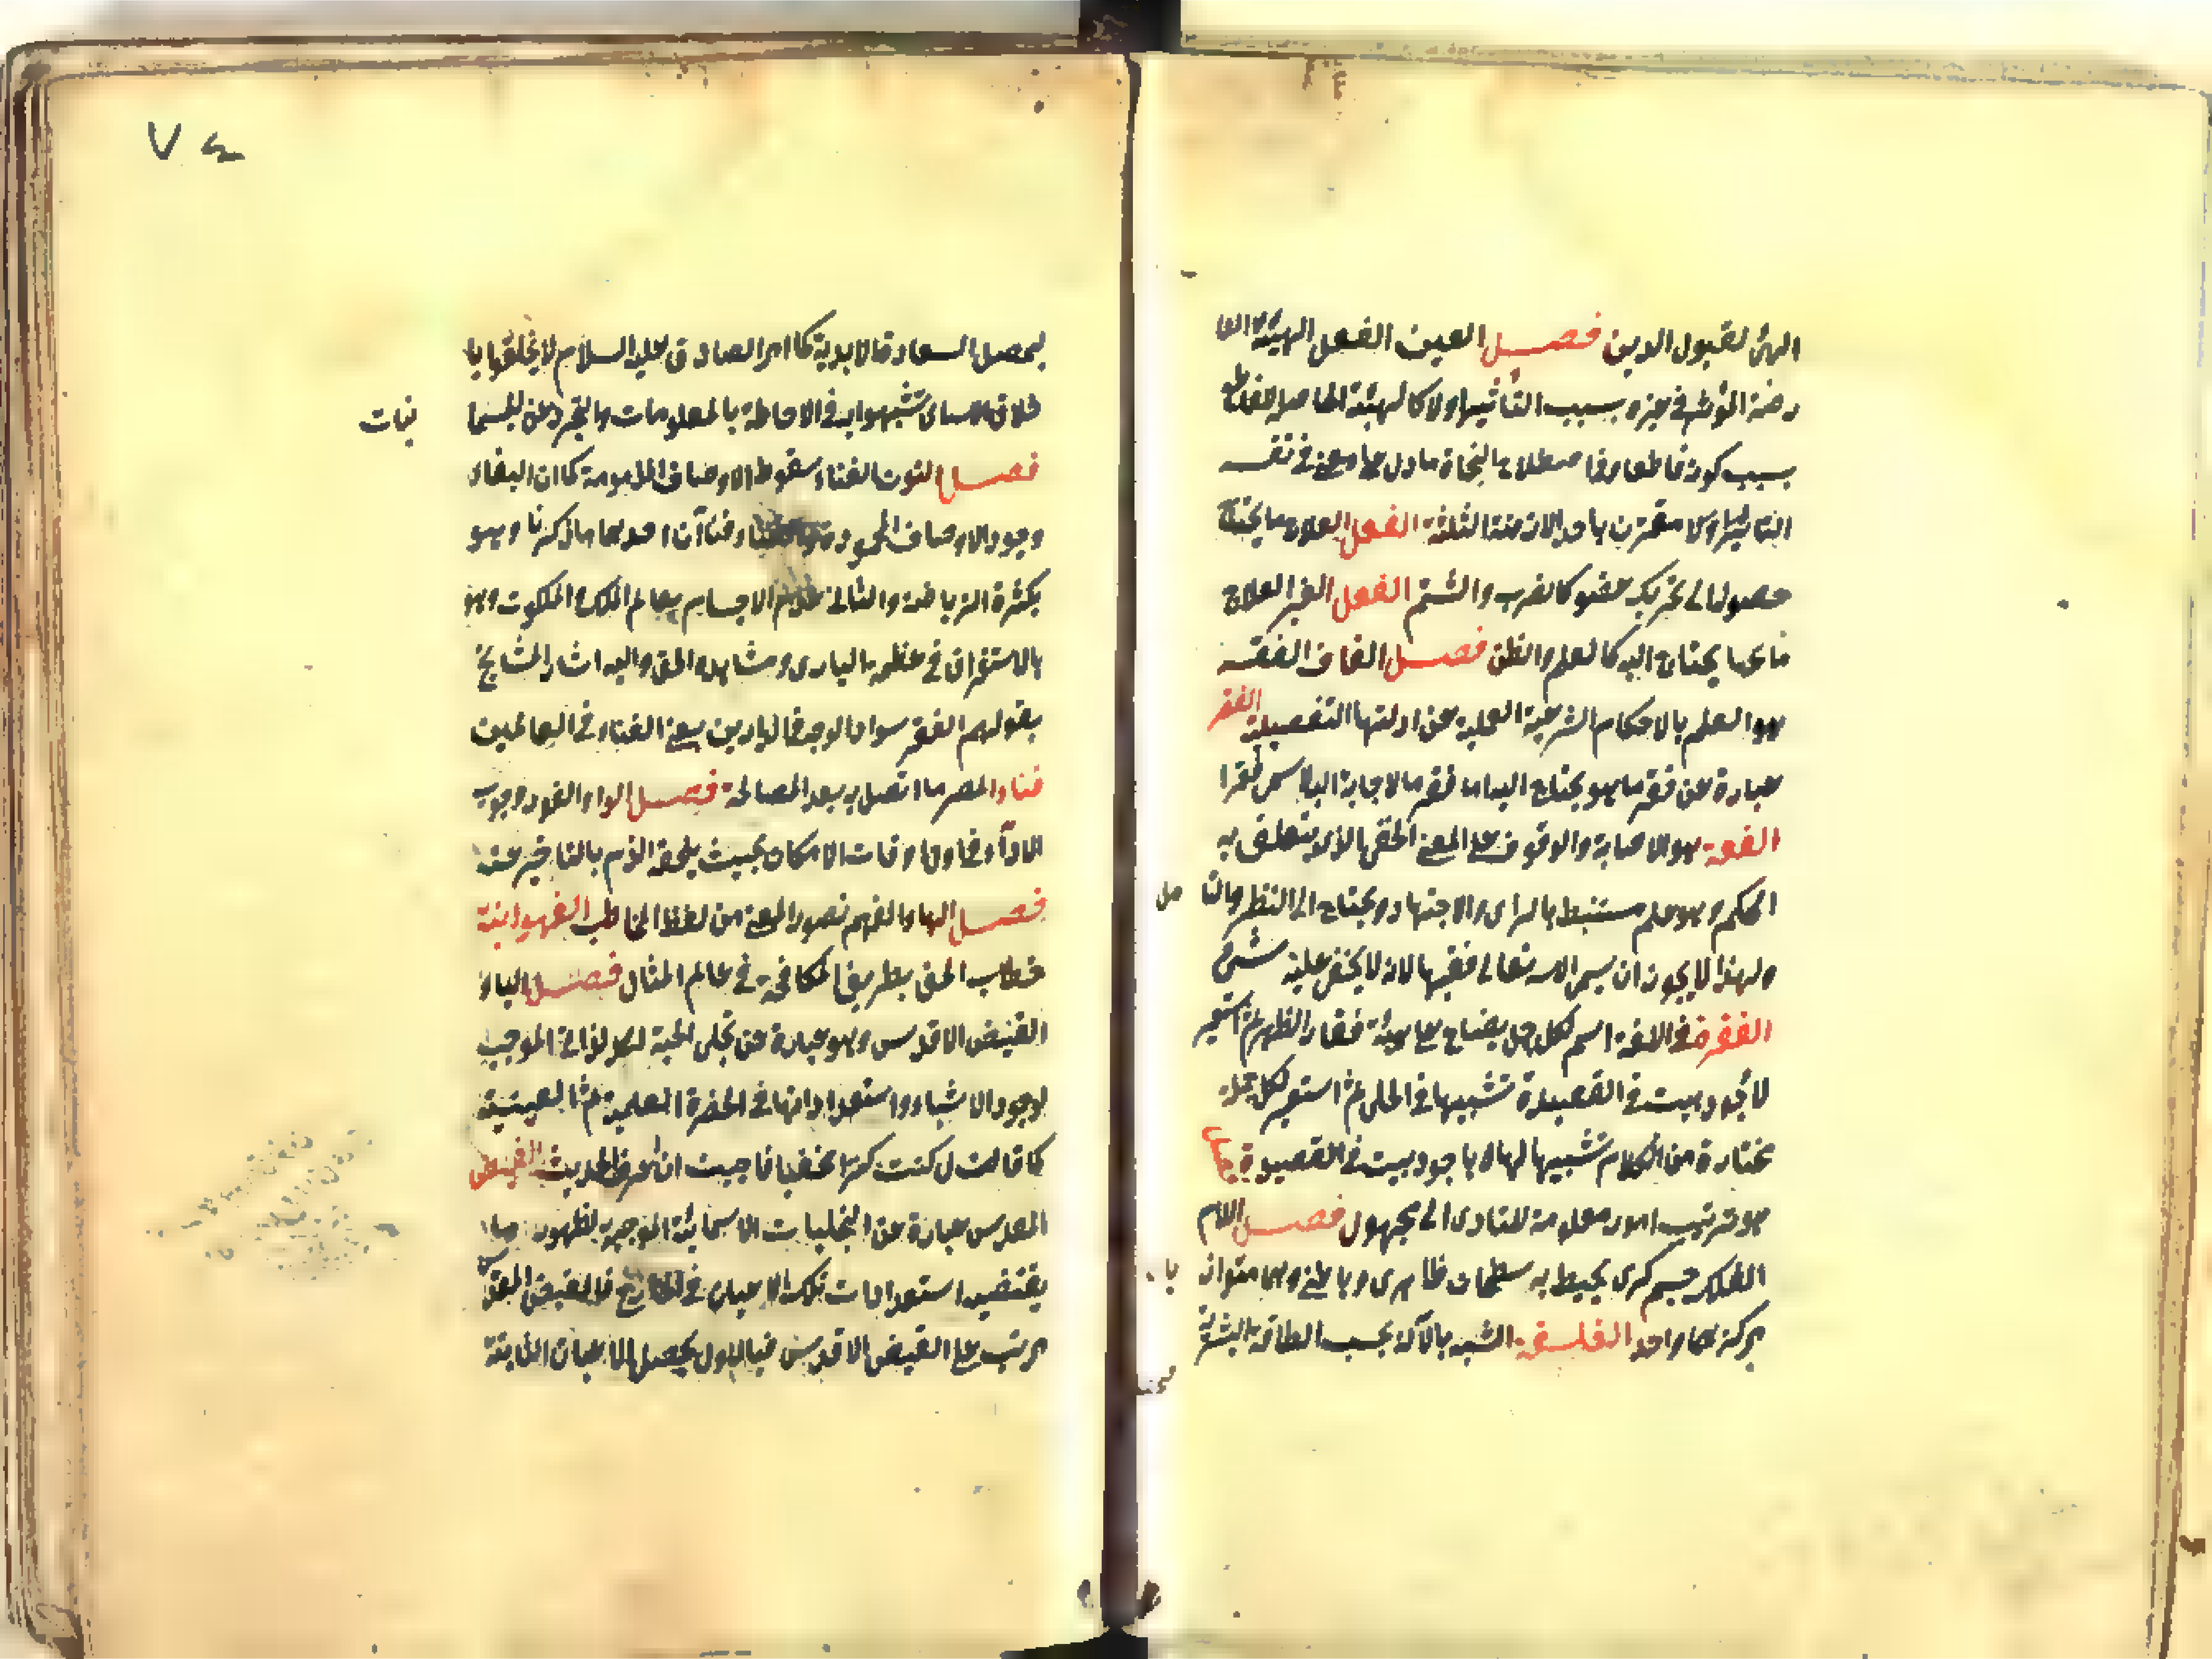 الهى لقبول الدين فصل العين الفعل الهيئة العا
رضة المؤثر فى غيره بسبب التأثير اولا كالهيئة الحاصلة للقاطع
بسبب كونه قاطعا وفى اصطلاح النحاة ما دل على معنى فى نفسه
مقترن باحد الازمنة الثلثة الفعل العلاج ما يحتاج
حصوله الى تحريك عضو كالضرب والشتم الفعل الغير العلاج
ما لا يحتاج اليه كالعلم والظن فصل القاف الفقه
هو العلم بالاحكام الشرعية العملية عن ادلتها التفصيلية الفقر
عبارة عن فقد ما هو يحتاج اليه اما فقد ما لا حاجة اليه لا يسمى فقرا
الفقه هو الاصابة والوقوف على المعنى الخفى الذى يتعلق به
الحكم وهو علم مستنبط بالرأى والاجتهاد ويحتاج الى النظر والتا مل
ولهذا لا يجوز ان يسمى الله تعالى فقيها لانه لا يخفى عليه شئ
الفقرة فى اللغة اسم لكل حلى يصاغ على هيئة فقار الظهر ثم استعير
لاجود بيت فى القصيدة تشبيها فى الحلى ثم استعير لكل جملة
مختارة من الكلام تشبيها لها باجود بيت فى القصيدة
هو ترتيب امور معلومة للتادى الى مجهول فصل اللام
الفلك جسم كرى يحيط به سطحان ظاهرى وباطنى وهما متوازيا ن
مركزهما واحد الفلسفة التشبه بالآله بحسب الطاقة البشرية
٧٤
ليحصل السعادة الابدية كما امر الصادق عليه السلام تخلقوا با
خلاق الله اى تشبهوا به فى الاحاطة بالمعلومات والتجرد عن الجسما نيات
فصل النون الفناء سقوط الاوصاف المذمومة كما ان البقاء
وجود الاوصاف المحمودة والفناء فناآن احدهما ما ذكرنا وهو
بكثرة الرياضة والثانى عدم الاحساس بعالم الملك والملكوت وهو
بالاستغراق فى عظمة البارى ومشاهدة الحق واليه اشار المشايخ
بقولهم الفقر سواد الوجه فى الدارين يعنى الفناء فى العالمين
فناء المصر ما اتصل به بعد المصالحة فصل الواو الفور وجوب
الادآء فى اول اوقات الامكان بحيث يلحقه الذم بالتاخير عنه
فصل الهاء الفهم تصور المعنى من لفظ المخاطب الفهوانية
خطاب الحق بطريق المكافحة فى عالم المثال فصل الياء
الفيض الاقدس وهو عبارة عن تجلى الحبة الموجب
لوجود الاشياء واستعداداتها فى الحضرة العلمية ثم العينية
كما قال كنت كنزا مخفيا فاحببت ان اعرف الحديث الفيض
المقدس عبارة عن التجليات الاسمائية الموجبة لظهور ما
يقتضيه استعدادات تلك الاعيان فى الخارج فالفيض المقدس
مرتب على الفيض الاقدس فبالاول يحصل الاعيان الثابتة